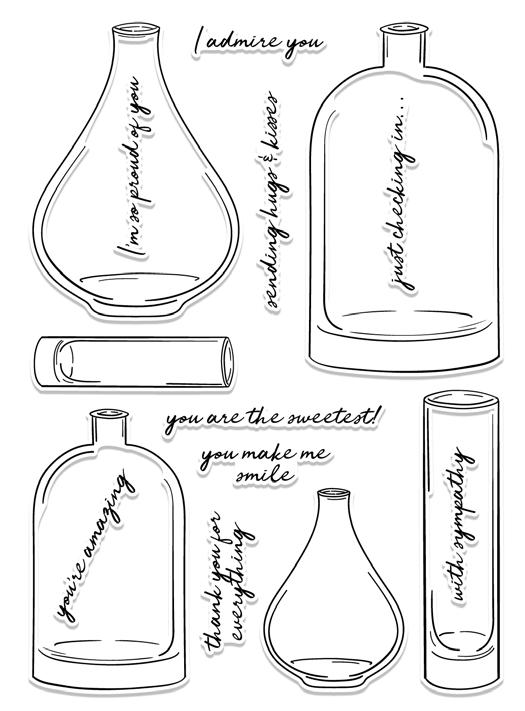 I admire you
I'm so proud of you
sending hugs & kisses
just checking in...
you are the sweetest!
you make me
smile
you're amazing
thank you for
everything
with sympathy